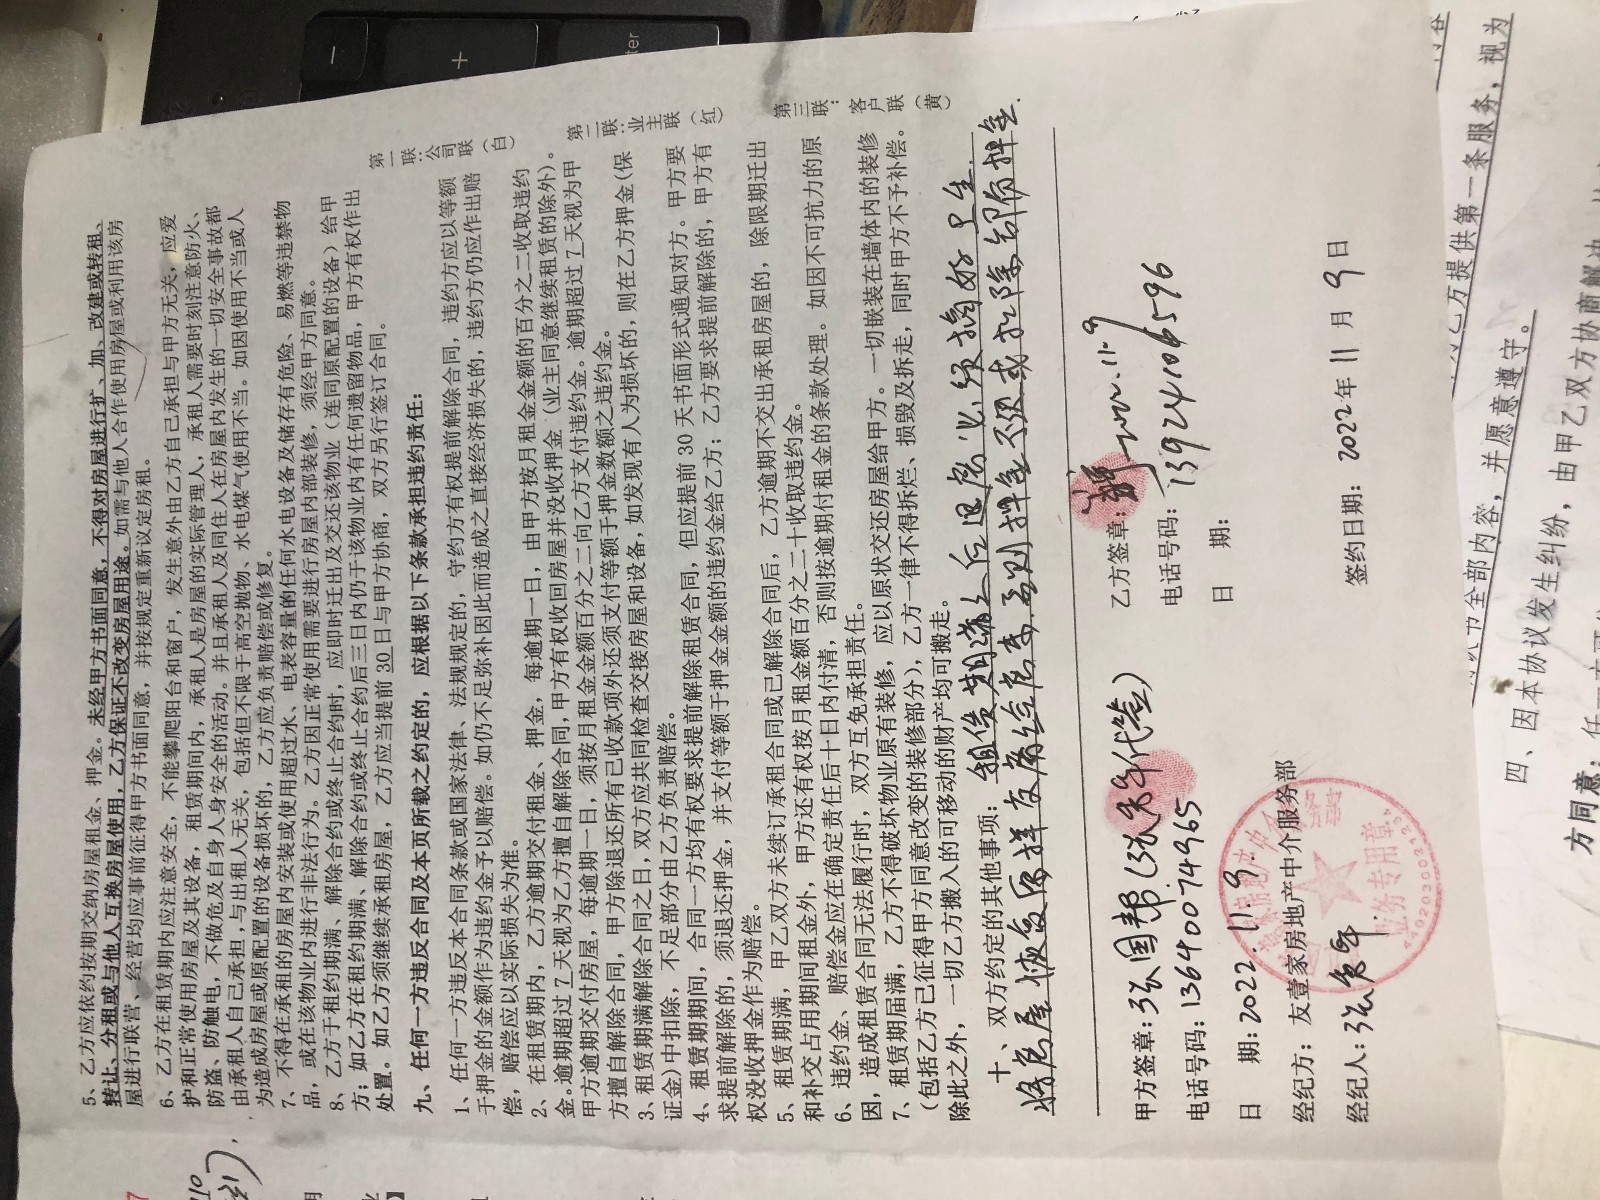 5、乙方应依约按期交纳房屋租金、押金。未经甲方书面同意，不得对房屋进行扩、加、改建或转租、
转让、分租或与他人互换房屋使用，乙方保证不改变房屋用途。如需与他人合作使用房屋或利用该房
屋进行联营、经营均应事前征得甲方书面同意，并按规定重新议定房租。
6、乙方在租赁期内应注意安全，不能攀爬阳台和窗户，发生意外由乙方自己承担与甲方无关，应爱
护和正常使用房屋及其设备，租赁期间内，承租人是房屋的实际管理人，承租人需要时刻注意防火、
防盗、防触电，不做危及自身人身安全的活动。并且承租人及同住人在房屋内发生的一切安全事故都
由承租人自己承担，与出租人无关，包括但不限于高空抛物、水电煤气使用不当。如因使用不当或人
为造成房屋或原配置的设备损坏的，乙方应负责赔偿或修复。
7、不得在承租的房屋内安装或使用超过水、电表容量的任何水电设备及储存有危险、易燃等违禁物
品，或在该物业内进行非法行为。乙方因正常使用需要进行房屋内部装修，须经甲方同意。
8、乙方于租约期满、解除合约或终止合约时，应即时迁出及交还该物业（连同原配置的设备）给甲
方；如乙方在租约期满、解除合约或终止合约后三日内仍于该物业内有任何遗留物品，甲方有权作出
处置。如乙方须继续承租房屋，乙方应当提前30日与甲方协商，双方另行签订合同。
九、任何一方违反合同及本页所载之约定的，应根据以下条款承担违约责任：
1、任何一方违反本合同条款或国家法律、法规规定的，守约方有权提前解除合同，违约方应以等额
于押金的金额作为违约金予以赔偿。如仍不足弥补因此而造成之直接经济损失的，违约方仍应作出赔
偿，赔偿应以实际损失为准。
2、在租赁期内，乙方逾期交付租金、押金，每逾期一日，由甲方按月租金金额的百分之二收取违约
金。逾期超过7天视为乙方擅自解除合同，甲方有权收回房屋并没收押金（业主同意继续租赁的除外）。
甲方逾期交付房屋，每逾期一日，须按月租金金额百分之二向乙方支付违约金。逾期超过7天视为甲
方擅自解除合同，甲方除退还所有已收款项外还须支付等额于押金数额之违约金。
3、租赁期满解除合同之日，双方应共同检查交接房屋和设备，如发现有人为损坏的，则在乙方押金(保
证金)中扣除，不足部分由乙方负责赔偿。
4、租赁期期间，合同一方均有权要求提前解除租赁合同，但应提前30天书面形式通知对方。甲方要
求提前解除的，须退还押金，并支付等额于押金金额的违约金给乙方；乙方要求提前解除的，甲方有
权没收押金作为赔偿。
5、租赁期满，甲乙双方未续订承租合同或已解除合同后，乙方逾期不交出承租房屋的，除限期迁出
和补交占用期间租金外，甲方还有权按月租金额百分之二十收取违约金。
6、违约金、赔偿金应在确定责任后十日内付清，否则按逾期付租金的条款处理。如因不可抗力的原
因，造成租赁合同无法履行时，双方互免承担责任。
7、租赁期届满，乙方不得破坏物业原有装修，应以原状交还房屋给甲方。一切嵌装在墙体内的装修
（包括乙方已征得甲方同意改变的装修部分），乙方一律不得拆烂、损毁及拆走，同时甲方不予补偿。
除此之外，一切乙方搬入的可移动的财产均可搬走。
十、双方约定的其他事项：租赁期满之后退房必须搞好卫生
将房屋恢复原样交房给房东，否则押金不退或扣除部份押金.
第一联：公司联（白）
第二联：业主联（红）
第三联：客户联（黄）
甲方签章：张国帮(张宋年代签)
电话号码：13640074965
日 期：2022.11.9.
乙方签章：2022.11.9
电话号码：13924106596
日 期：
经纪方：友壹家房地产中介服务部
经纪人：张宋年
签约日期：2022年11月9日
业务专用章
为乙方提供第一条服务，视为
全部内容，并愿意遵守。
四、因本协议发生纠纷，由甲乙双方协商解决
方同意：
enter
+
-